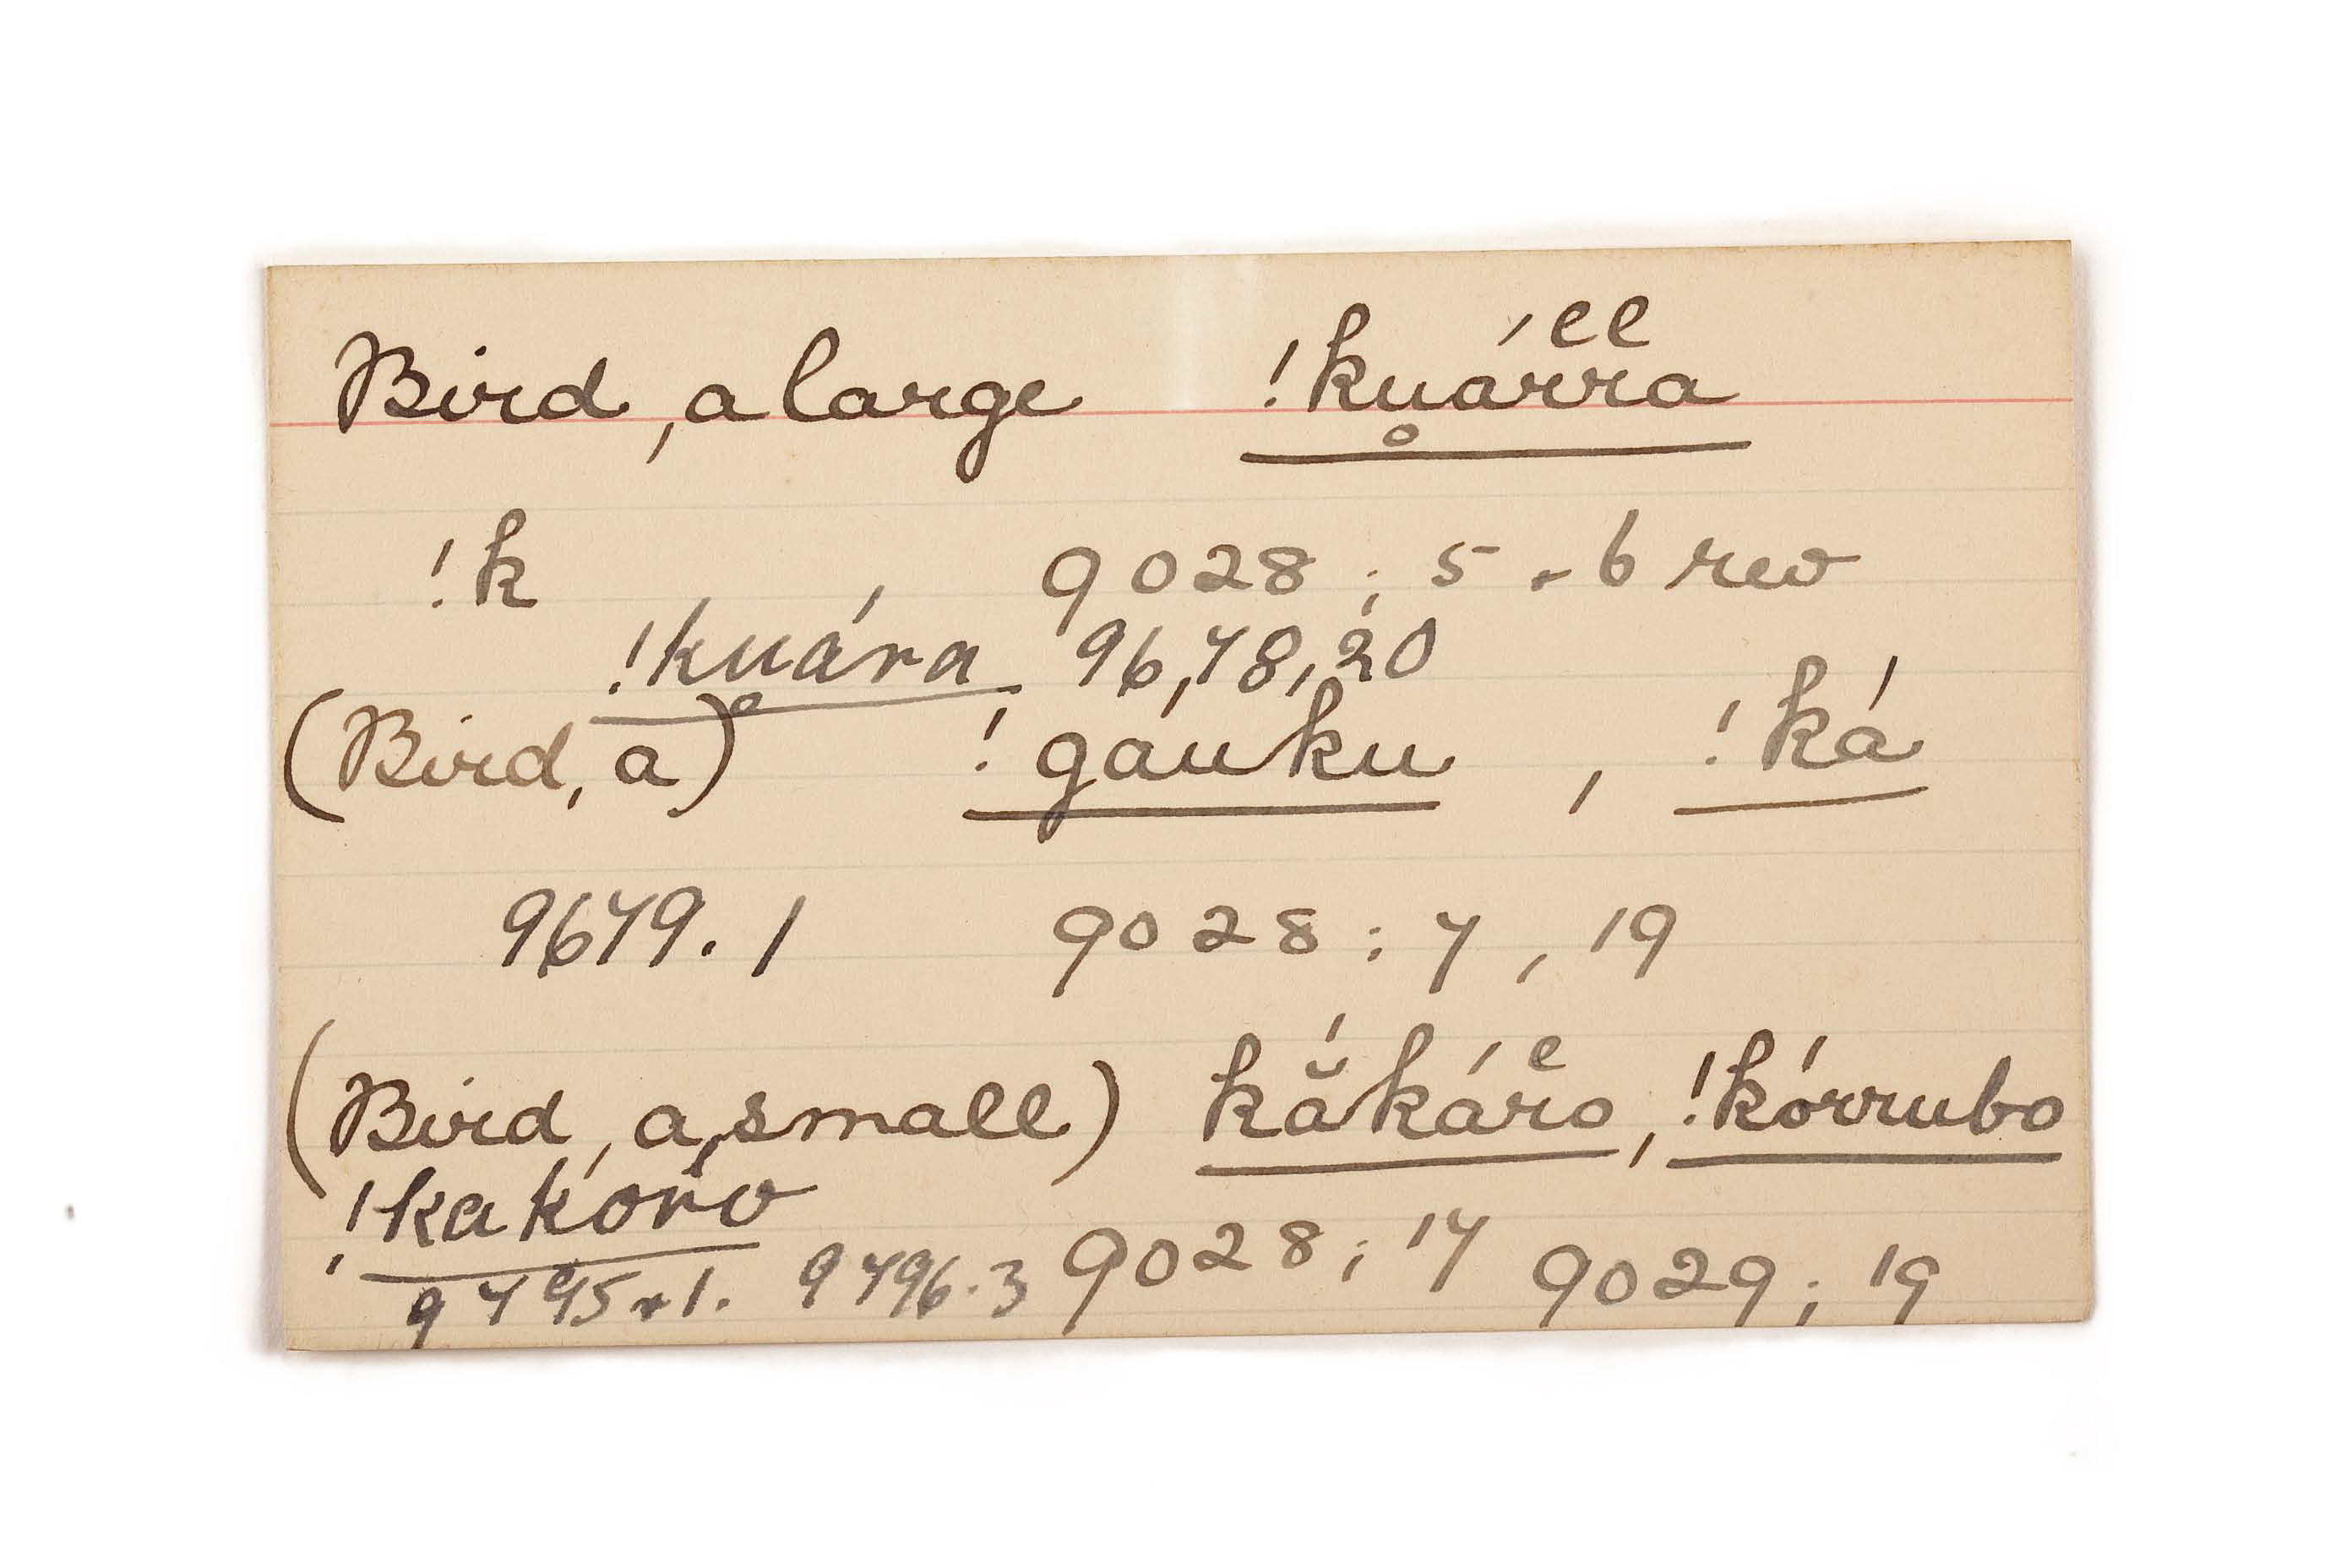 Bird, a large !kṷárra
!k 9028; 5 + 6 rev
!kuára 9678,20
(Bird, a) !gáuku, !ká
9679.1 9028; 7, 19
(Bird, a, small) kắkáro, !kórrubo
!kakóro
9028; 17 9029; 19
9796.3